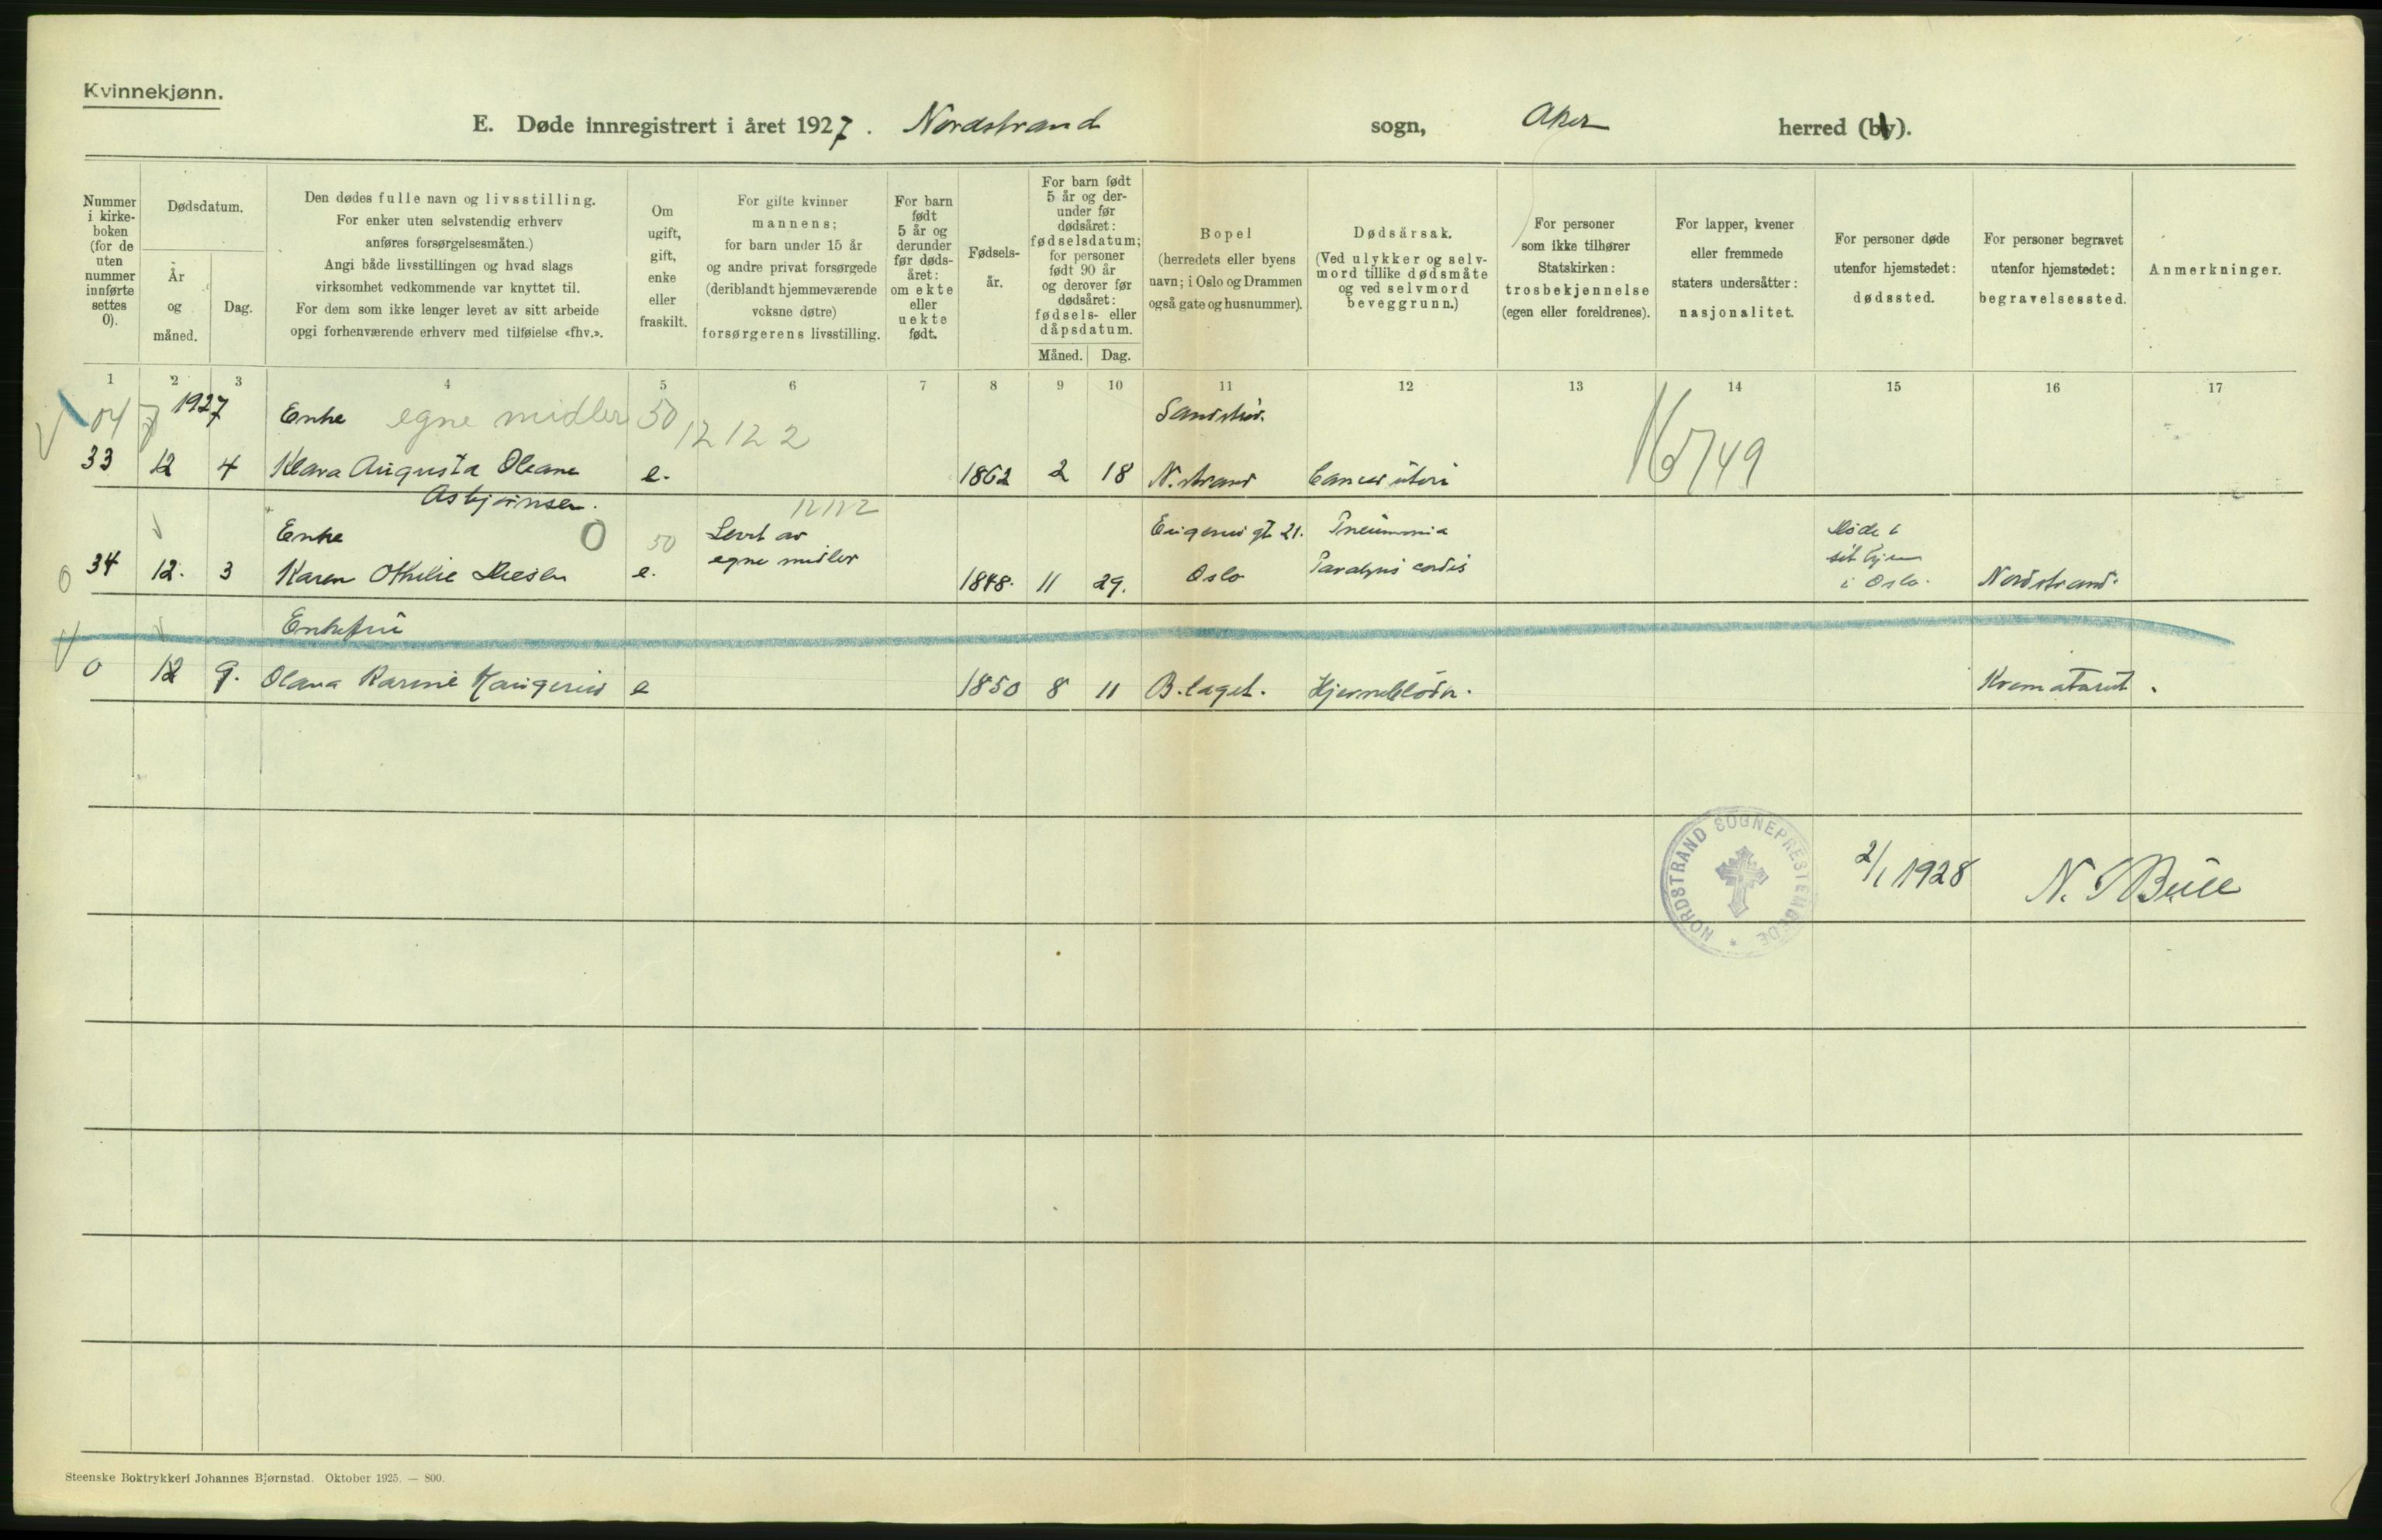 Kvinnekjønn.
E. Døde innregistrert i året 1927. Nordstrand sogn, Aker herred (by).
Nummer i kirke- boken (for de uten nummer innførte settes 0).
Dødsdatum.
År og måned.
Dag.
Den dødes fulle navn og livsstilling.
For enker uten selvstendig erhverv
anføres forsørgelsesmåten.)
Angi både livsstillingen og hvad slags
virksomhet vedkommende var knyttet til.
For dem som ikke lenger levet av sitt arbeide
opgi forhenværende erhverv med tilføielse «fhv.».
Om ugift, gift, enke eller fraskilt.
For gifte kvinner
mannens;
for barn under 15 år
og andre privat forsørgede
(deriblandt hjemmeværende
voksne døtre)
forsørgerens livsstilling.
For barn født 5 år og derunder før døds- året: om ekte eller uekte født.
Fødsels- år.
For barn født 5 år og der- under før dødsåret: fødselsdatum; for personer født 90 år og derover før dødsåret: fødsels- eller dåpsdatum.
Måned. Dag.
Bopel
(herredets eller byens
navn; i Oslo og Drammen
også gate og husnummer).
Dødsårsak.
(Ved ulykker og selv-
mord tillike dødsmåte
og ved selvmord
beveggrunn.)
For personer
som ikke tilhører
Statskirken:
trosbekjennelse
(egen eller foreldrenes).
For lapper, kvener
eller fremmede
staters undersåtter:
nasjonalitet.
For personer døde
utenfor hjemstedet:
dødssted.
For personer begravet
utenfor hjemstedet:
begravelsessted.
Anmerkninger.
1 2 3 4 5 6 7 8 9 10 11 12 13 14 15 16 17
1927 Enke egne midler 50 12122
33 12 4 Klara Augusta Oleane e. 1862 2 18 N. strand Cancer uteri 16749
Asbjørnsen.
12112
Enke 0 50 Levet av Eugenies gt 21. Pneumonia Døde i
34 12. 3 Karen Othilie e. egne midler 1848. 11 29. Oslo Paralysis cordis sit hjem
i Oslo. Nordstrand.
Enkefru
0 12 9. Olava Karine e 1850 8 11 B.laget. Hjerneblødn. Krematoriet.
NORDSTRAND SOGNEPRESTEMBEDE
2/1 1928 N. J Bull
Steenske Boktrykkeri Johannes Bjørnstad. Oktober 1925. — 800.